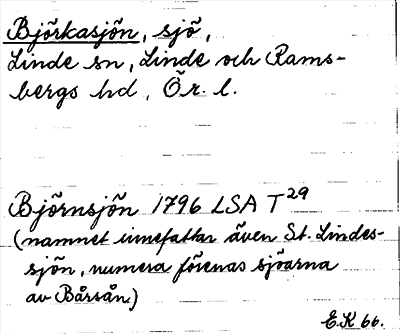 Björkasjön, sjö,
Linde sn, Linde och Rams-
bergs hd, Ör. l.
Björnsjön 1796 LSA T29
(namnet innefattar även St. Lindes-
sjön, numera förenas sjöarna
av Bårsån)
E.K 66.